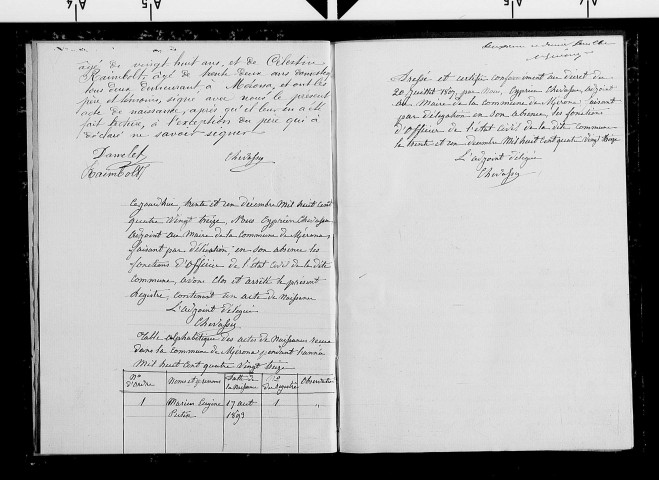 âgé de vingt huit ans, et de Célestin
Raimbolt, âgé de trente deux ans domestique
tous deux demeurant, à Mérona, et ont les
père et témoins, signé avec nous le présent
acte de naissance, après qu'il leur en a été
fait lecture, à l'exception du père qui a
déclaré ne savoir signer
Danelet Chevassu
Raimbolt
Cejourd'hui, trente et un décembre Mil huit cent
quatre vingt treize, Nous Cyprien Chevassu
adjoint au Maire de la commune de Mérona,
faisant par délégation, en son absence les
fonctions d'Officier de l'état civil de la dite
commune, avons clos et arrêté le présent
Registre, contenant un acte de Naissance
L'adjoint délégué
Chevassu
Table alphabétique des actes de Naissance reçus
dans la commune de Mérona pendant l'année
Mil huit cent quatre vingt treize
No d'ordre Noms et prénoms Date de la Naissance No du registre Observations
1 Marius Eugène 17 août 1 "
1893
Dressé et certifié conformément au décret du
20 Juillet 1807, par Nous, Cyprien Chevassu, adjoint
au Maire de la commune de Mérona; faisant
par délégation en son absence, les fonctions
d'Officier de l'état civil de la dite commune
le trente et un décembre Mil huit cent quatre vingt treize
L'adjoint délégué
Chevassu